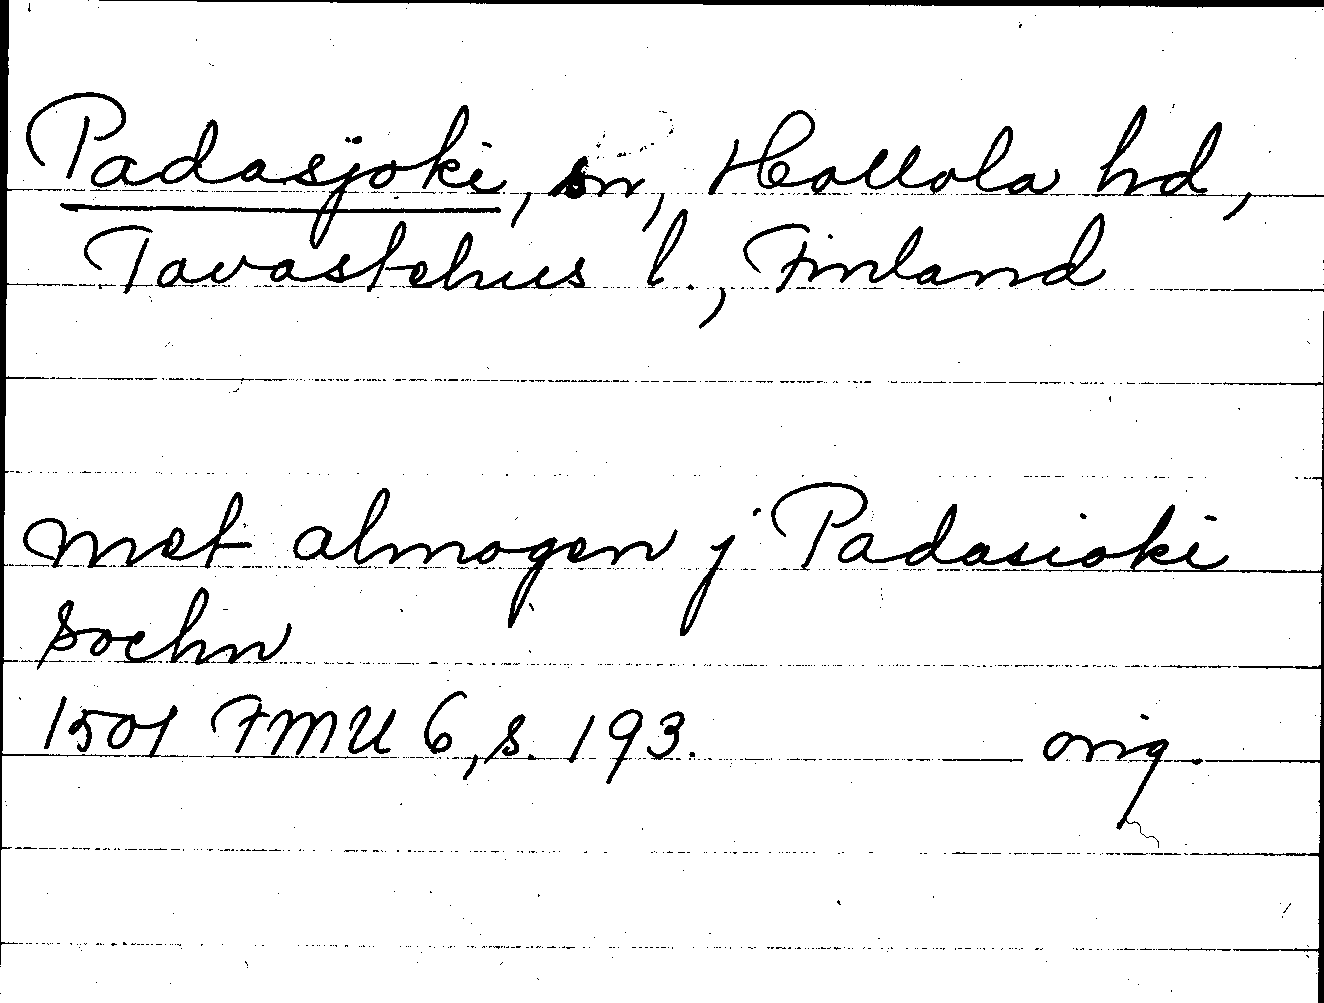 Padasjoki, sn, Hollola hd,
Tavastehus l., Finland
met almogen j Padasioki
sochn
1501 FMU 6, s. 193. orig.